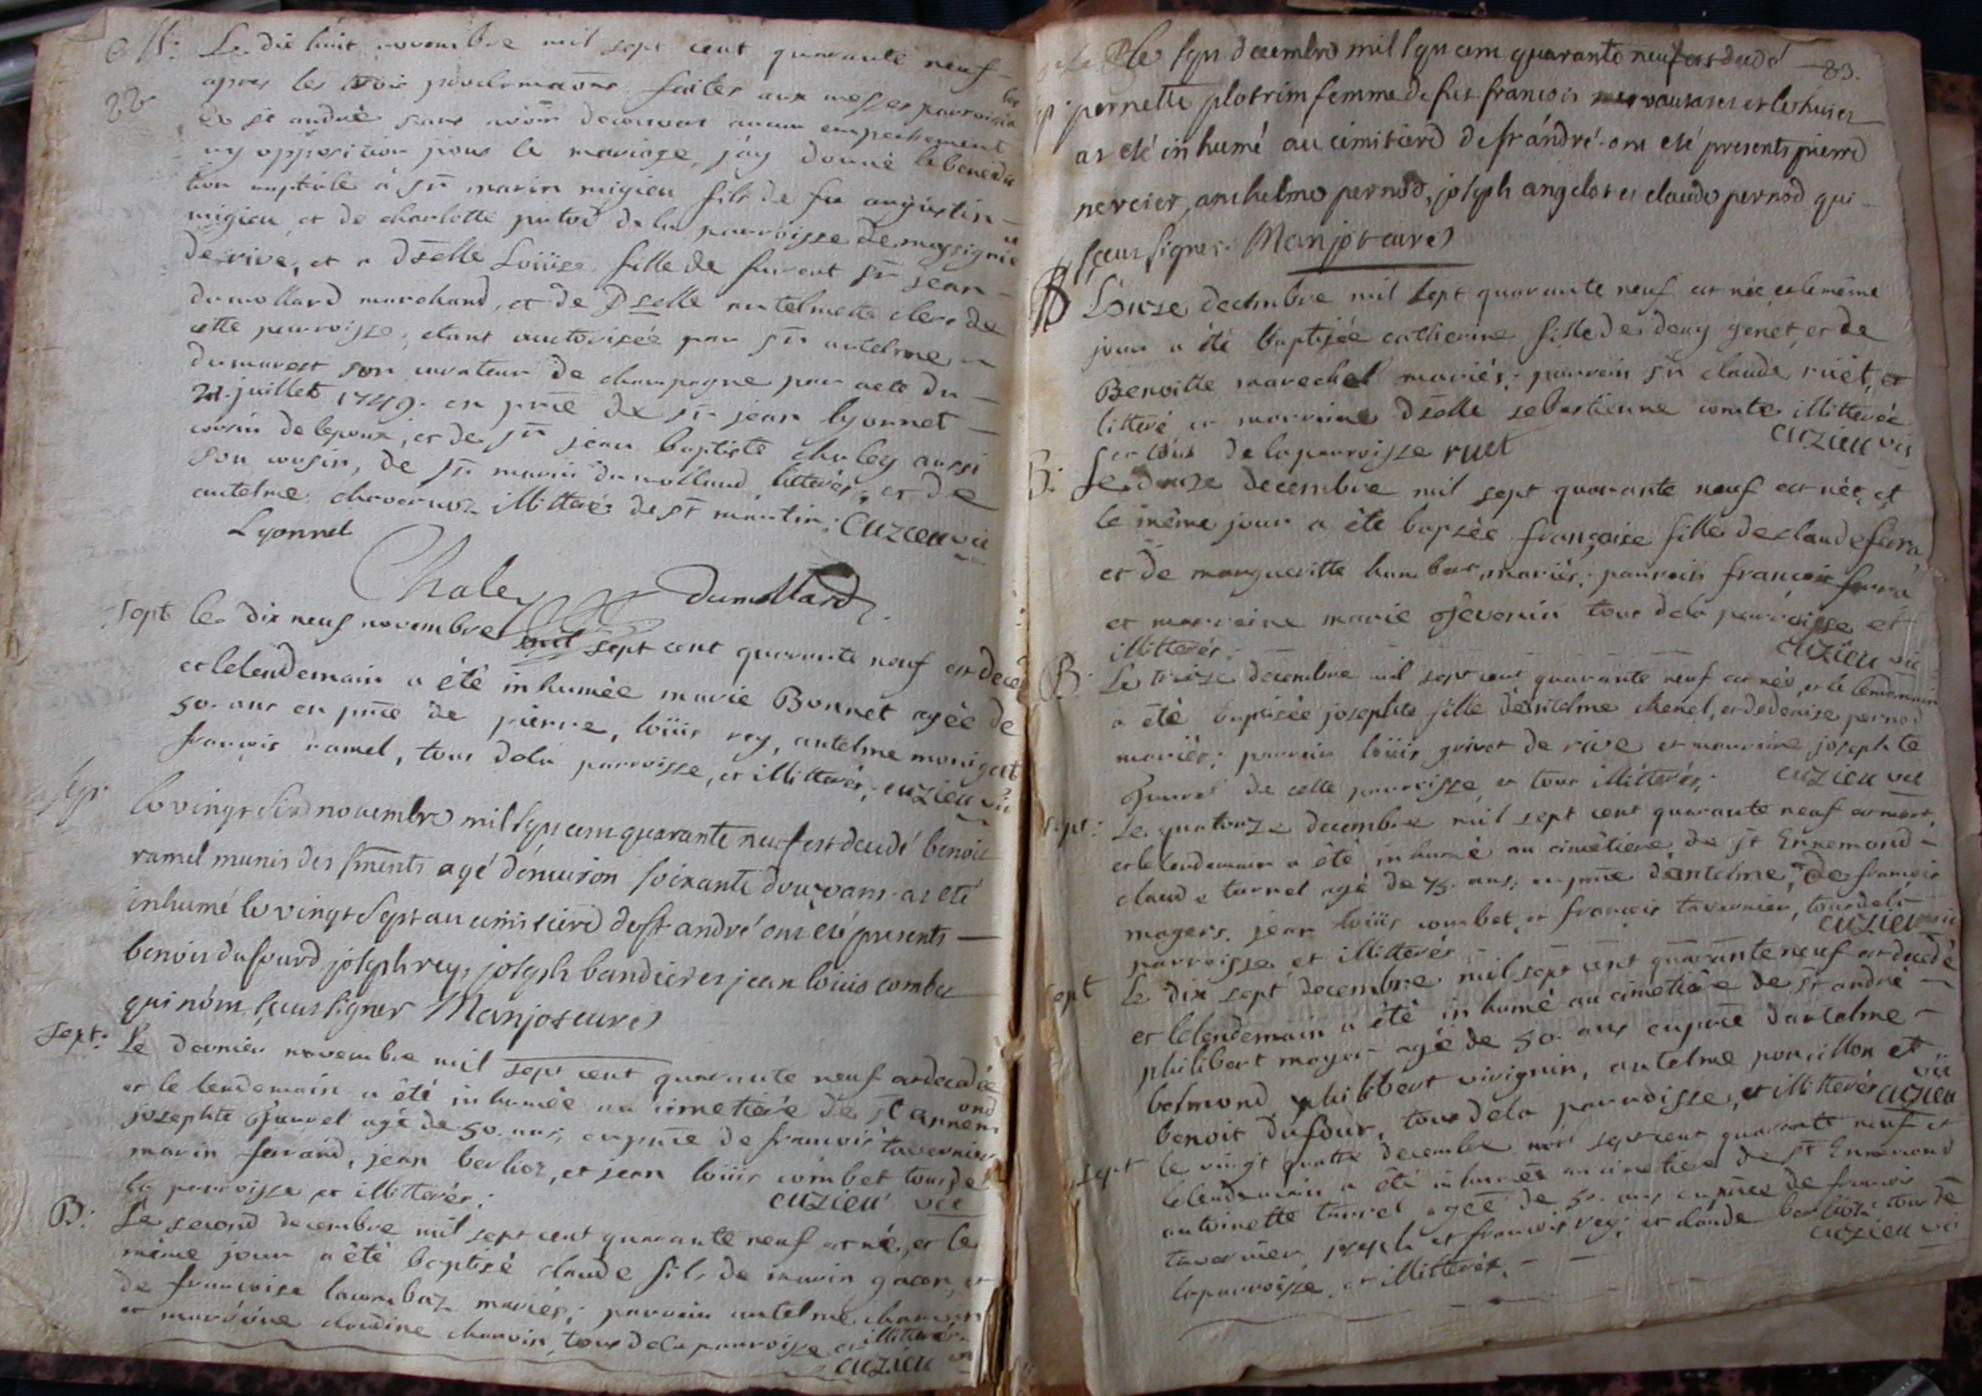 M: Le dix huit novembre mil sept cent quarante neuf
apres les trois proclamaõns faites aux messes parroissia les
22
de st andré sans avoir decouvert aucun empechement
ny opposition pour le mariage, j'ay donné la benedic
tion nuptiale à sr marin migieu fils de feu augustin
migieu, et de charlotte pitod de la parroisse de massignieu
de rive, et a dzelle Loüise fille de feu sr jean
dumollard marchand, et de dzelle antelmette clerc de
cette parroisse, etant auctorisée par sr antelme
dumarest son curateur de champagne par acte du
21. juillet 1749. en pnce de sr jean lyonnet
cousin de lepoux, et de sr jean baptiste chaley aussi
son cousin, de sr marin dumollard litterés, et de
antelme chavernoz illitteré de st martin. Cuzieu vic
Lyonnet
Chaley Dumollard
sept le dix neuf novembre mil sept cent quarante neuf est decedée
et le lendemain a été inhumée marie Bonnet agée de
50. ans en pnce de pierre, loüis rey, antelme monigert
françois ramel, tous de la parroisse, et illitterés. cuzieu vic
sep. le vingt six novembre mil sept cent quarante neuf est decedé benoit
ramel munis des sments agé d'enviròn soixante douze ans. at eté
inhumé le vingt sept au cimitierd de st andré ont eté presents
benoit dufourd joseph rey, joseph bandier et jean loüis combet
qui n'ont sceus signer Manjot curé
sept: Le dernier novembre mil sept cent quarante neuf est decedée
et le lendemain a été inhumée au cimetiere de st annemond
josephte Juvrel agé de 50. ans, en pnce de françois tavernier
marin ferrand, jean berlioz, et jean loüis combet tous de
la parroisse et illitterés: cuzieu vic
B: Le second decembre mil sept cent quarante neuf est né, et le
même jour a été baptisé claude fils de marin gacon, et
de françoise lacombaz mariés; parrain antelme chauvin
et marraine claudine chauvin, tous de la parroisse et illitterés.
cuzieu vic
83.
le sept decembre mil sept cent quarante neuf est decedé
pernette plotrim femme de fut francois
at eté inhumé au cimitierd de st andré. ont eté presents pierre
nercier, anthelme pernod, joseph angelot et claude pernod qui
sceus signer. Manjot curé
B L'onze decembre mil sept quarante neuf est née, et le même
jour a été baptisée catherine fille de deny genet, et de
Benoitte marechal mariés; parrain sr claude ruët, et
litteré et marraine dzelle sebastienne comte illitterée
et tous de la parroisse ruet cuzieu vic
B: Le douze decembre mil sept quarante neuf est née, et
le même jour a été bapzée françoise fille de claude ferra
et de margueritte humbert, mariés; parrain françois ferra
et marraine marie Jevenin tous de la parroisse et
illitterés. cuzieu vic
B: Le treize decembre mil sept cent quarante neuf est née, et le lendemain
a été baptisée josephte fille d'antelme chenel, et de denise pernod
mariés; parrain loüis grivet de rive et marraine josephte
Juvrel de cette parroisse, et tous illitterés. cuzieu vic
sept: Le quatorze decembre mil sept cent quarante neuf est mort,
et le lendemain a été inhumé au cimetiere de st Ennemond
claude turrel agé de 75. ans, en pnce d'antelme, de françois
magers, jean loüis combet, et françois tavernier, tous de la
parroisse et illitterés cuzieu vic
sept Le dix sept decembre mil sept cent quarante neuf est decedé
et le lendemain a été inhumé au cimetiere de st andré
philibert moyer agé de 50. ans en pnce d'antelme
belmond, philibert vivignin, antelme ponsillon et
benoit dufour, tous de la parroisse, et illitterés cuzieu vic
sept le vingt quatre decembre mil sept cent quarante neuf et
le lendemain a été inhumée au cimetiere de st Ennemond
antoinette turrel agée de 50. ans en pnce de francois
tavernier, joseph et francois rey, et claude berlioz tous de
la parroisse, et illitterés. cuzieu vic